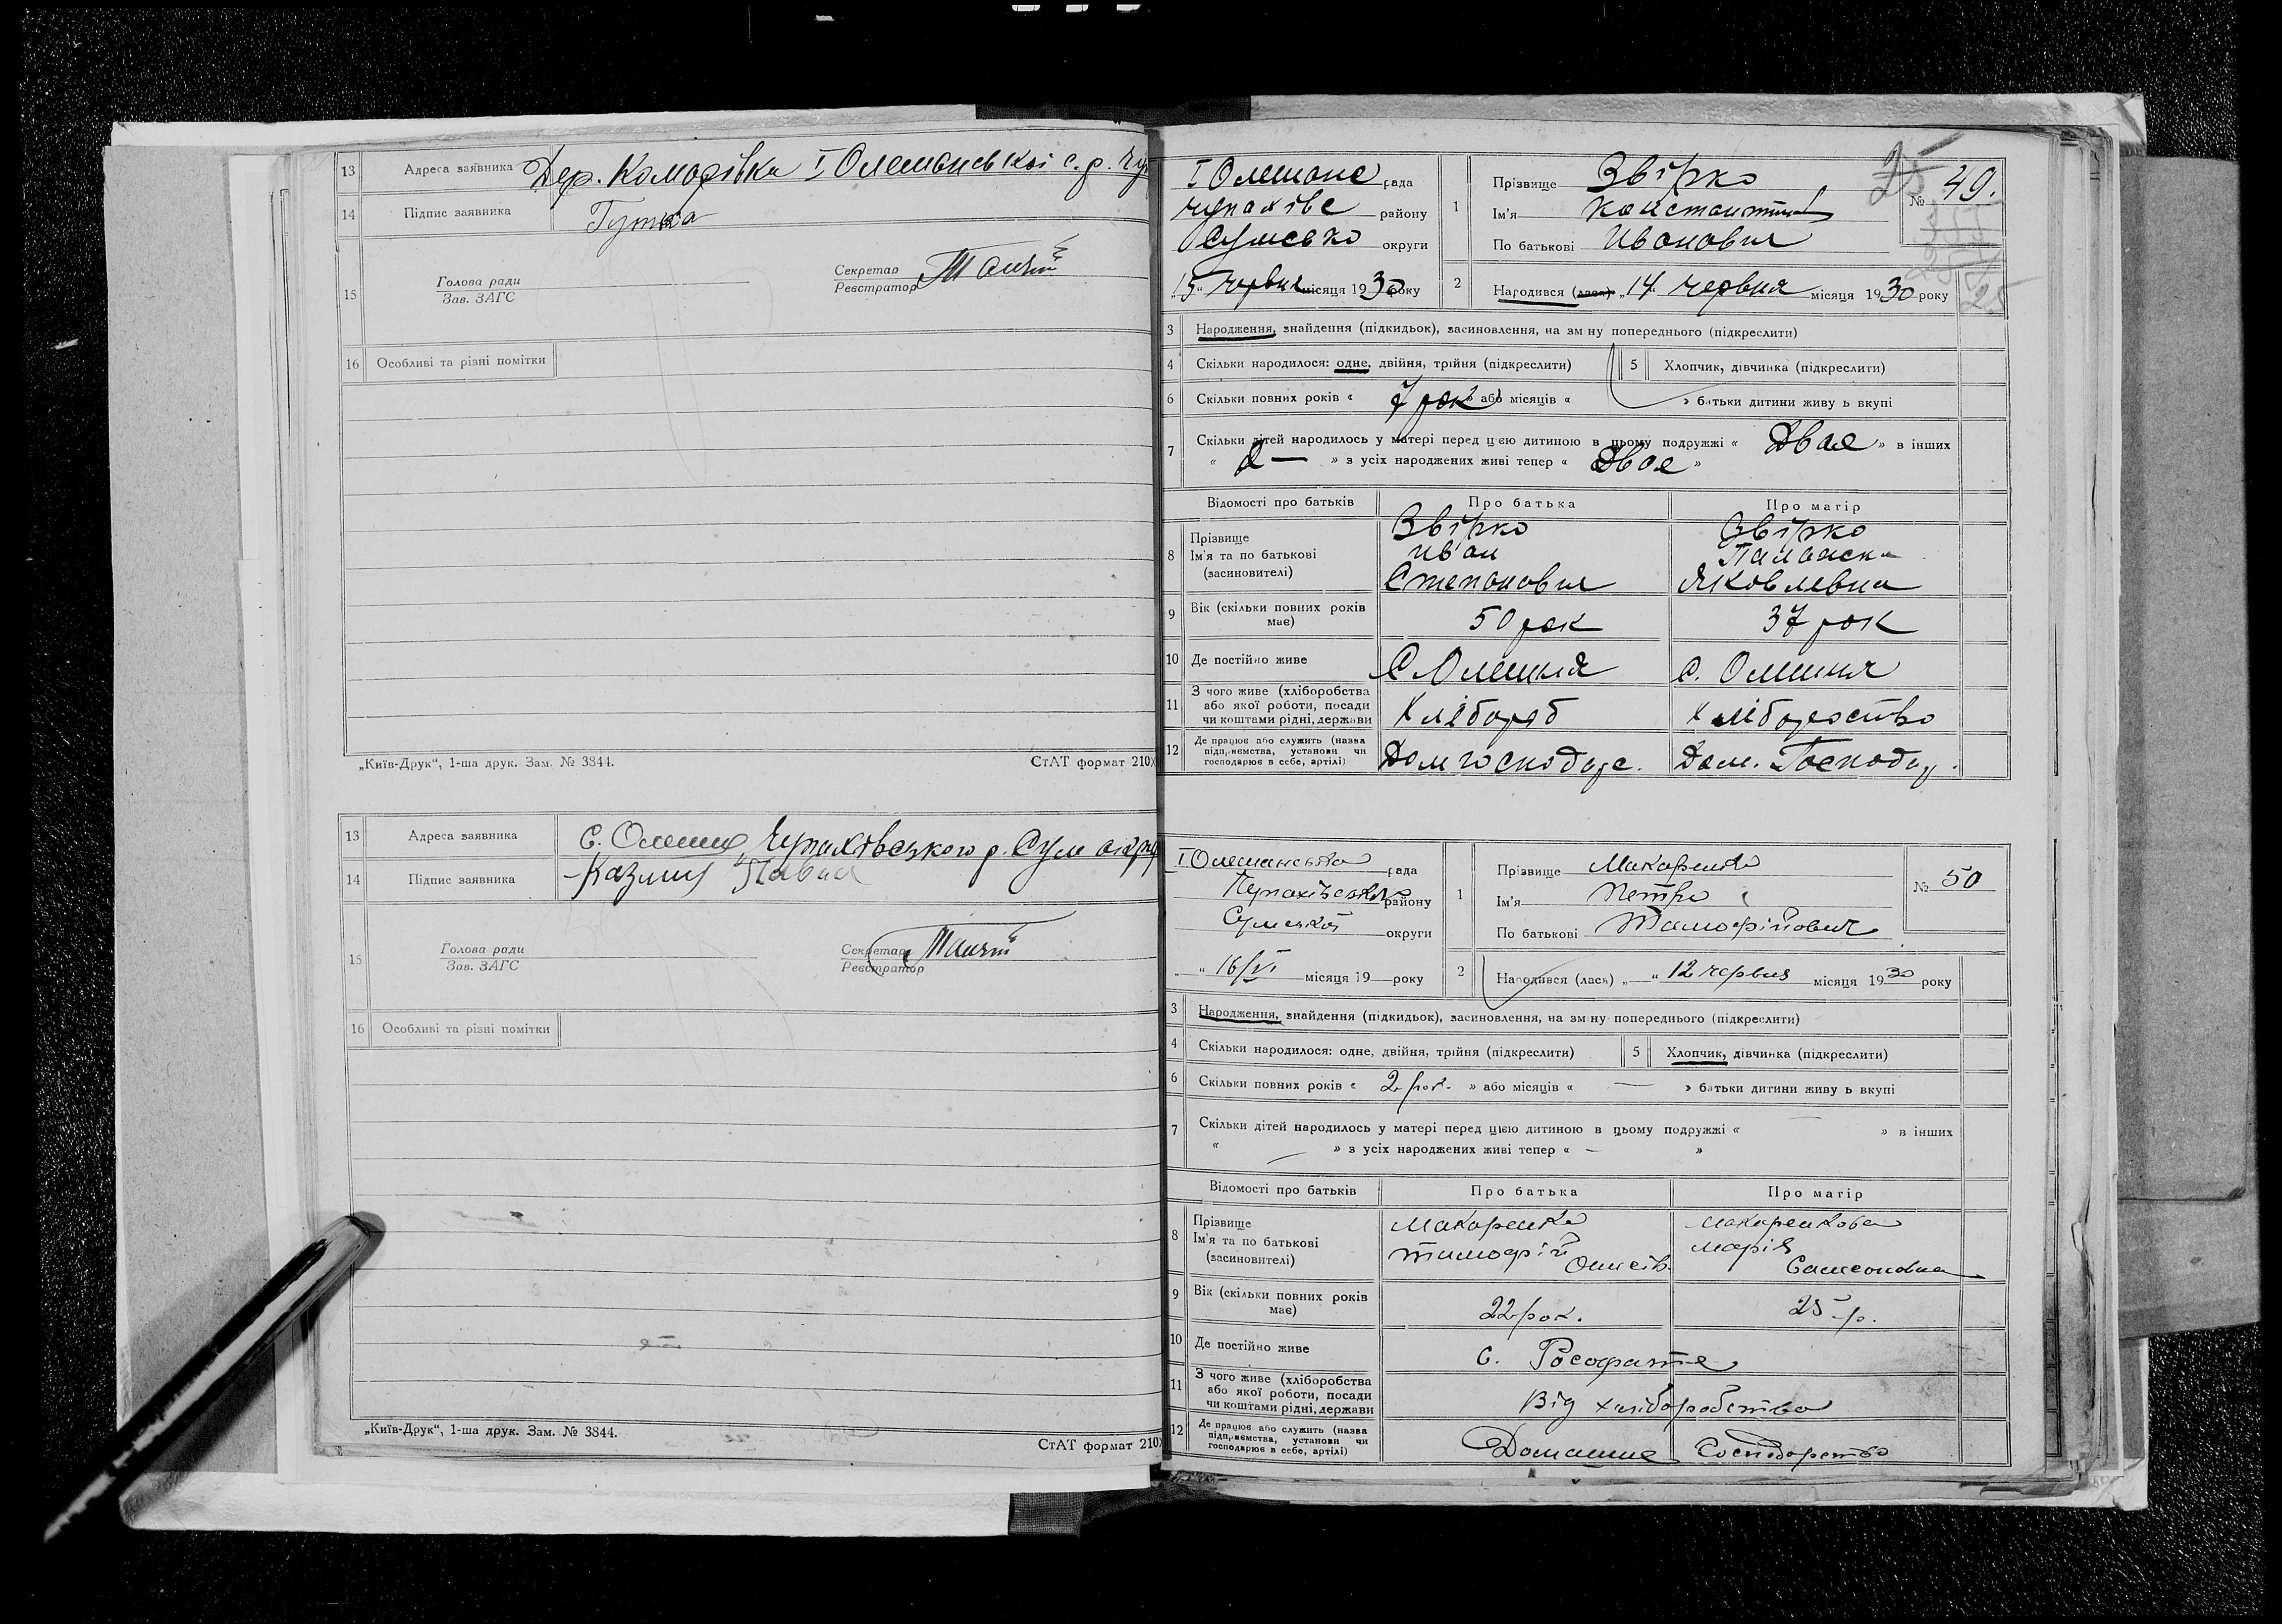 13 Адреса заявника Дер. Комарівка I Олешанської с. р. Чуп
14 Підпис заявника Гутка
15 Голова ради
Зав. ЗАГС
Секретар
Реєстратор
16 Особливі та різні помітки
„Київ-Друк“, 1-ша друк. Зам. № 3844. СтАТ формат 210Х
13 Адреса заявника С. Олешня Чупахівського р. Сум окру
14 Підпис заявника Казмин Павел
15 Голова ради
Зав. ЗАГС
Секретар
Реєстратор
16 Особливі та різні помітки
„Київ-Друк“, 1-ша друк. Зам. № 3844.
СтАТ формат 210Х
I Олешанс рада
Чупахівс району
Сумсько округи
„15“ Червня місяця 1930 року
1 Прізвище Звірко
Ім'я Константин
По батькові Иванович
25
№ 49.
2 Народився (лася) „14“ червня місяця 1930 року
3 Народження, знайдення (підкидьок), засиновлення, на зміну попереднього (підкреслити)
4 Скільки народилося: одне, двійня, трійня (підкреслити) 5 Хлопчик, дівчинка (підкреслити)
6 Скільки повних років « 7 рок » або місяців « » батьки дитини живуть вкупі
7 Скільки дітей народилось у матері перед цією дитиною в цьому подружжі « Двое » в інших
« — » з усіх народжених живі тепер « Двое »
Відомості про батьків Про батька Про матір
8 Прізвище
Ім'я та по батькові
(засиновителі)
Звірко
Иван
Степанович
Звірко
Палажка
Яковлевна
9 Вік (скільки повних років має) 50 рок 37 рок
10 Де постійно живе С Олешня С. Олешня
11 З чого живе (хліборобства
або якої роботи, посади
чи коштами рідні, держави
Хлібороб Хліборобство
12 Де працює або служить (назва
підприємства, установи чи
господарює в себе, артілі)
Дом господарс. Дом. Господар.
I Олешанська рада
Чупахівського району
Сумської округи
„ “ 16/VI місяця 19 року
1 Прізвище Макаренко
Ім'я Петро
По батькові Тимофійович
№ 50
2 Народився (лася) „ “ 12 червня місяця 1930 року
3 Народження, знайдення (підкидьок), засиновлення, на зміну попереднього (підкреслити)
4 Скільки народилося: одне, двійня, трійня (підкреслити) 5 Хлопчик, дівчинка (підкреслити)
6 Скільки повних років « 2 рок. » або місяців « — » батьки дитини живуть вкупі
7 Скільки дітей народилось у матері перед цією дитиною в цьому подружжі « — » в інших
« — » з усіх народжених живі тепер « — »
Відомості про батьків Про батька Про матір
8 Прізвище
Ім'я та по батькові
(засиновителі)
Макаренко
Тимофій
Макаренкова
Марія
Самсоновна
9 Вік (скільки повних років має) 22 рок. 25 р.
10 Де постійно живе С. Росохвате
11 З чого живе (хліборобства
або якої роботи, посади
чи коштами рідні, держави
Від хліборобства
12 Де працює або служить (назва
підприємства, установи чи
господарює в себе, артілі)
Домашнє Господарство